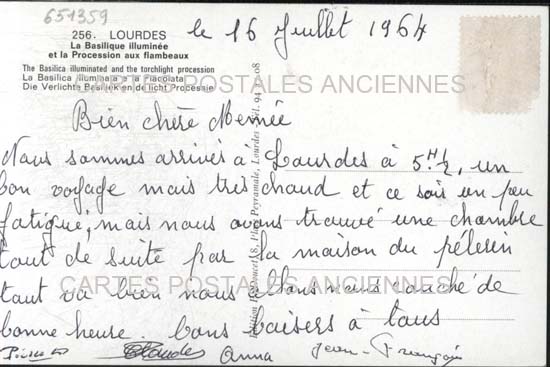 651359
le 16 Juillet 1964
256. LOURDES
La Basilique illuminée
et la Procession aux flambeaux
The Basilica illuminated and the torchlight procession
La Basilica illuminata e la fiaccolata
Die Verlichte Basiliek en de licht Processie
CARTES POSTALES ANCIENNES
Bien chère Mémée
Nous sommes arrivés à Lourdes à 5 H ½, un
bon voyage mais très chaud et ce soir un peu
fatigué, mais nous avons trouvé une chambre
tout de suite par la maison du pélerin
CARTES POSTALES ANCIENNES
tout va bien nous allons nous couché de
bonne heure. bons baisers à tous
Claude Anna Jean-François
8, Place Peyramale, Lourdes Tél. 94